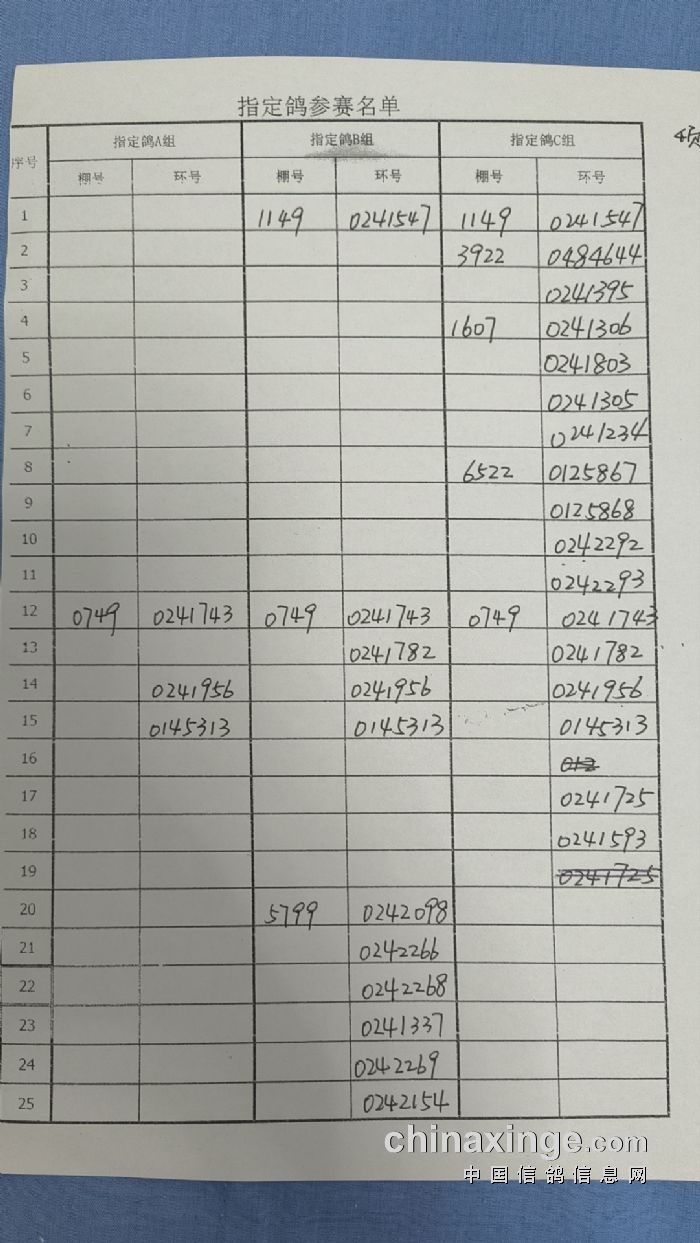 指定鸽参赛名单
序号 指定鸽A组 指定鸽B组 指定鸽C组
棚号 环号 棚号 环号 棚号 环号
1 1149 0241547 1149 0241547
2 3922 0484644
3 0241395
4 1607 0241306
5 0241803
6 0241305
7 0241234
8 6522 0125867
9 0125868
10 0242292
11 0242293
12 0749 0241743 0749 0241743 0749 0241743
13 0241782 0241782
14 0241956 0241956 0241956
15 0145313 0145313 0145313
16 012
17 0241725
18 0241593
19 0241725
20 5799 0242098
21 0242266
22 0242268
23 0241337
24 0242269
25 0242154
chinaxinge.com
中国信鸽信息网